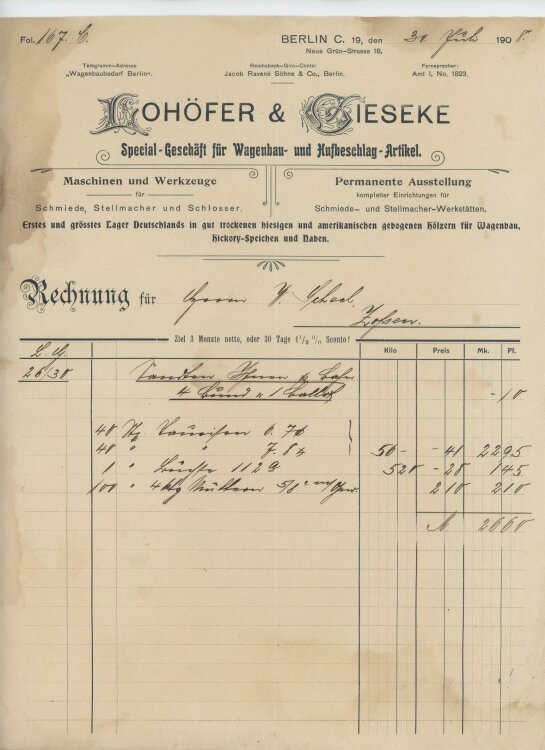 Fol. 167. C.
BERLIN C. 19, den 30. Juli 1908.
Neue Grün-Strasse 18.
Telegramm-Adresse
„Wagenbaubedarf Berlin“.
Reichsbank-Giro-Conto:
Jacob Ravené Söhne & Co., Berlin.
Fernsprecher:
Amt I, No. 1823.
LOHÖFER & GIESEKE
Special-Geschäft für Wagenbau- und Hufbeschlag-Artikel.
Maschinen und Werkzeuge
für
Schmiede, Stellmacher und Schlosser.
Permanente Ausstellung
kompletter Einrichtungen für
Schmiede- und Stellmacher-Werkstätten.
Erstes und grösstes Lager Deutschlands in gut trockenen hiesigen und amerikanischen gebogenen Hölzern für Wagenbau,
Hickory-Speichen und Naben.
Rechnung für Herrn
Zossen.
Ziel 3 Monate netto, oder 30 Tage 1 1/2 % Sconto!
L. G. Kilo Preis Mk. Pf.
26/30 Sandten Ihnen p Bahn
4 Bund u 1 Ballot -10
40 6.76
40 " " 7.82 56- -41 2295
1 " Büchse 1129 520 -28 145
100 " 4ktg Muttern 5/8" 210 210
M. 2660